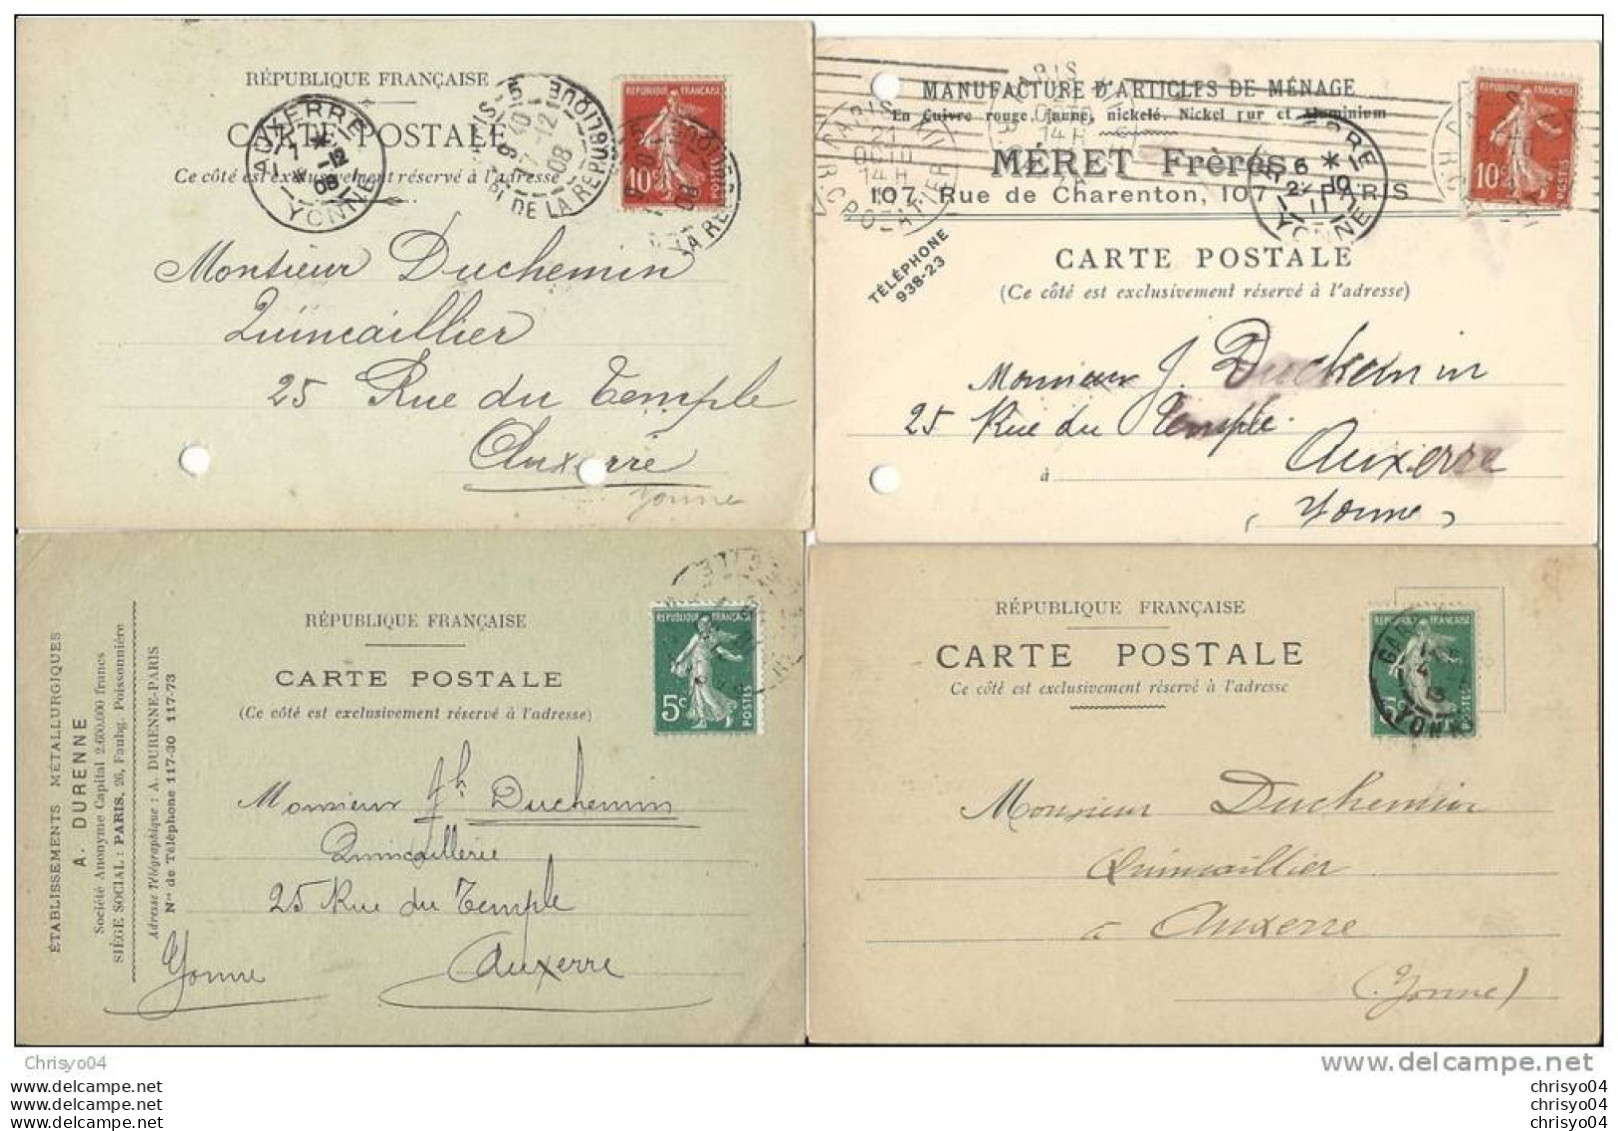 RÉPUBLIQUE FRANÇAISE
CARTE POSTALE
Ce côté est exclusivement réservé à l'adresse
AUXERRE
7 * -12
08
YONNE
PARIS-5
9 10
17-12
08
PL. DE LA RÉPUBLIQUE
RÉPUBLIQUE FRANÇAISE
10c
POSTES
Monsieur Duchemin
Quincaillier
25 Rue du Temple
Auxerre
Yonne
MANUFACTURE D'ARTICLES DE MÉNAGE
En Cuivre rouge, jaune, nickelé. Nickel pur et Aluminium
MÉRET Frères
107, Rue de Charenton, 107 - PARIS
PARIS XII
21
OCTO
14 H
TÉLÉPHONE
938-23
CARTE POSTALE
(Ce côté est exclusivement réservé à l'adresse)
RÉPUBLIQUE FRANÇAISE
10c
POSTES
Monsieur J. Duchemin
25 Rue du Temple
à Auxerre
(Yonne)
ÉTABLISSEMENTS MÉTALLURGIQUES
A. DURENNE
Société Anonyme Capital 2.600.000 francs
SIÈGE SOCIAL : PARIS, 26, Faubg. Poissonnière
Adresse Télégraphique : A. DURENNE-PARIS
Nos de Téléphone 117-30 117-73
RÉPUBLIQUE FRANÇAISE
CARTE POSTALE
(Ce côté est exclusivement réservé à l'adresse)
RÉPUBLIQUE FRANÇAISE
5c
POSTES
Monsieur Jh Duchemin
Quincaillerie
25 Rue du Temple
Auxerre
Yonne
RÉPUBLIQUE FRANÇAISE
CARTE POSTALE
Ce côté est exclusivement réservé à l'adresse
YONNE
Monsieur Duchemin
Quincaillier
à Auxerre
(Yonne)
Chrisyo04
©delcampe.net
www.delcampe.net
www.delcampe.net
www.delcampe.net
chrisyo04
chrisyo04
chrisyo04